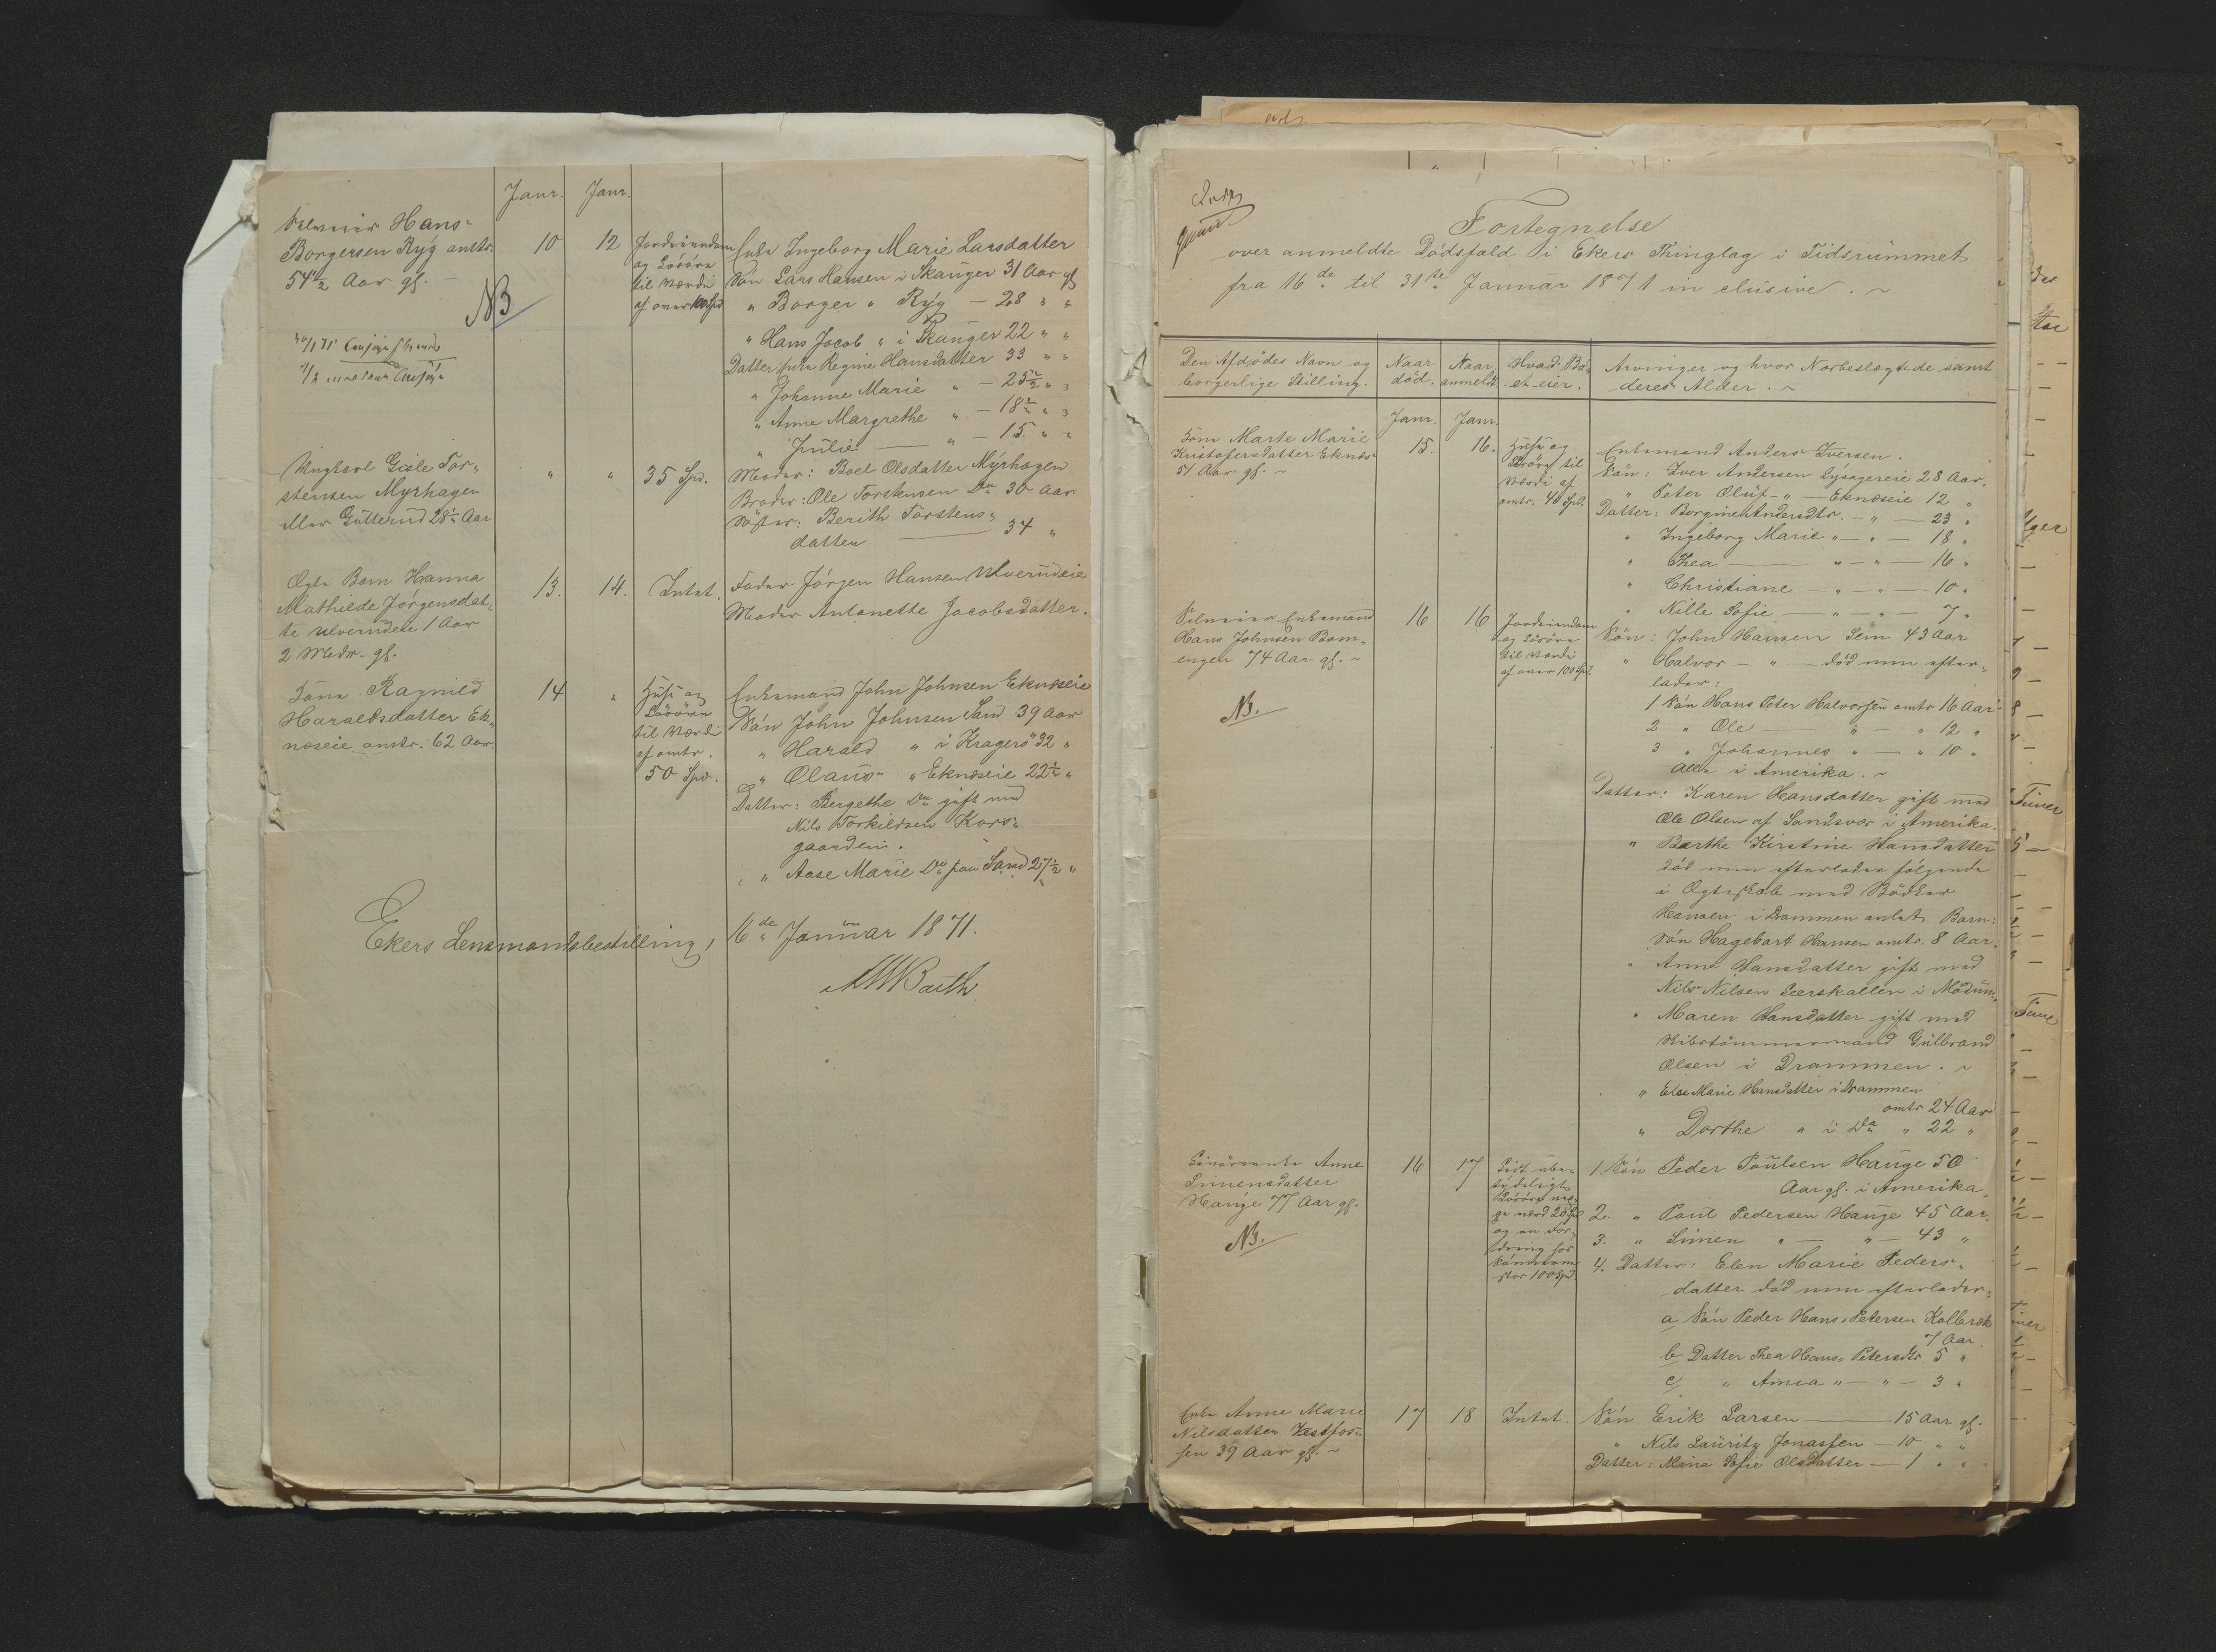 Janr. Janr.
Selveier Hans
Borgersen Ryg omtr.
54 1/2 Aar gl. —
10 12
Jordeiendom
og Løsøre
til Værdi
af over 100 Spd.
Enke Ingeborg Marie Larsdatter
Søn Lars Hansen i Skanger 31 Aar gl
" Borger " Ryg — 28 " "
" Hans Jacob " i Skanger 22 " "
Datter Enke Regine Hansdatter 33 " "
" Johanne Marie " — 25 1/2 " "
" Anne Margrethe " — 18 1/2 " "
" Julie — " — 15 " "
NB
Ungkarl Gisle Tor-
stensen Myrhagen
eller Gutterud 28 1/2 Aar
" " 35 Spd.
Moder: Boel Olsdatter Myrhagen
Broder: Ole Torstensen Do 30 Aar
Søster: Berith Torstens-
datter — 34 "
Ægte Barn Hanna
Mathilde Jørgensdat-
ter Ulverudeie 1 Aar
2 Mdr. gl.
13. 14. Intet.
Fader Jørgen Hansen Ulverudeie
Moder Antonette Jacobsdatter.
Kone Ragnild
Haraldsdatter Ek-
næseie omtr. 62 Aar.
14 "
Huse og
Løsøre
til Værdi
af omtr.
50 Spd.
Enkemand John Johnsen Eknæseie
Søn John Johnsen Sand 39 Aar
" Harald " i Kragerø 32 "
" Olaus - " Eknæseie 22 1/2 "
Datter: Bergethe Do gift med
Nils Torkildsen Kors-
gaarden.
" Aase Marie Do paa Sand 27 1/2 "
Ekers Lensmandsbestilling, 16de Januar 1871.
Fortegnelse
over anmeldte Dødsfald i Ekers Thinglag i Tidsrummet
fra 16de til 31te Januar 1871 inclusive.
Den Afdødes Navn og
borgerlige Stilling.
Naar
død.
Naar
anmeldt
Hvad Bo-
et eier.
Arvinger og hvor Nærbeslægtede samt
deres Alder.
Janr. Janr.
Kone Marte Marie
Kristofersdatter Eknæs
51 Aar gl.
15. 16.
Huse og
Løsøre til
Værdi af
omtr. 40 Spd.
Enkemand Anders Iversen.
Søn: Iver Andersen Lysagereie 28 Aar.
" Peter Oluf - " — Eknæseie 12 "
Datter: Borgine Andersdtr. - " — 23 "
" Ingeborg Marie " - " — 18 "
" Thea — " - " — 16 "
" Christiane — " - " — 10 "
" Nille Sofie — " - " — 7 "
Selveier Enkemand
Hans Johnsen Bom-
engen 74 Aar gl.
16 16
Jordeiendom
og Løsøre
til Værdi
af over 100 Spd.
NB.
Søn: John Hansen Sem 43 Aar
" Halvor — " — død men efter-
lader:
1 Søn Hans Peter Halvorsen omtr 16 Aar
2 " Ole — " — " 12 "
3 " Johannes " — " 10 "
Alle i Amerika.
Datter: Karen Hansdatter gift med
Ole Olsen af Sandsvær i Amerika.
" Barthe Kirstine Hansdatter
død men efterlader følgende
i Ægteskab med Bødker
Hansen i Drammen avlet Barn:
Søn Hagebart Hansen omtr. 8 Aar.
" Anne Hansdatter gift med
Nils Nilsen Leerskallen i Modum.
" Maren Hansdatter gift med
Skibstømmermand Gulbrand
Olsen i Drammen.
" Else Marie Hansdatter i Drammen
omtr 24 Aar
" Dorthe " i Do " 22 "
Anne
Simensdatter
Hauge 77 Aar gl.
16 17
NB.
1. Søn Peder Poulsen Hauge 50
Aar gl. i Amerika.
2. " Poul Pedersen Hauge 45 Aar.
3. " Simen " — " — 43 "
4. Datter: Elen Marie Peders-
datter død men efterlader:
a Søn Peder Hans-Petersen Kolbræk
7 Aar
b Datter Thea Hans-Petersdtr 5 "
c " Anna " — " — 3 "
Enke Anne Marie
Nilsdatter Vestfos-
sen 39 Aar gl.
17 18 Intet.
Søn Erik Larsen — 15 Aar gl.
" Nils Lauritz Jonassen — 10 " "
Datter: Mina Sofie Olsdatter — 1 " "